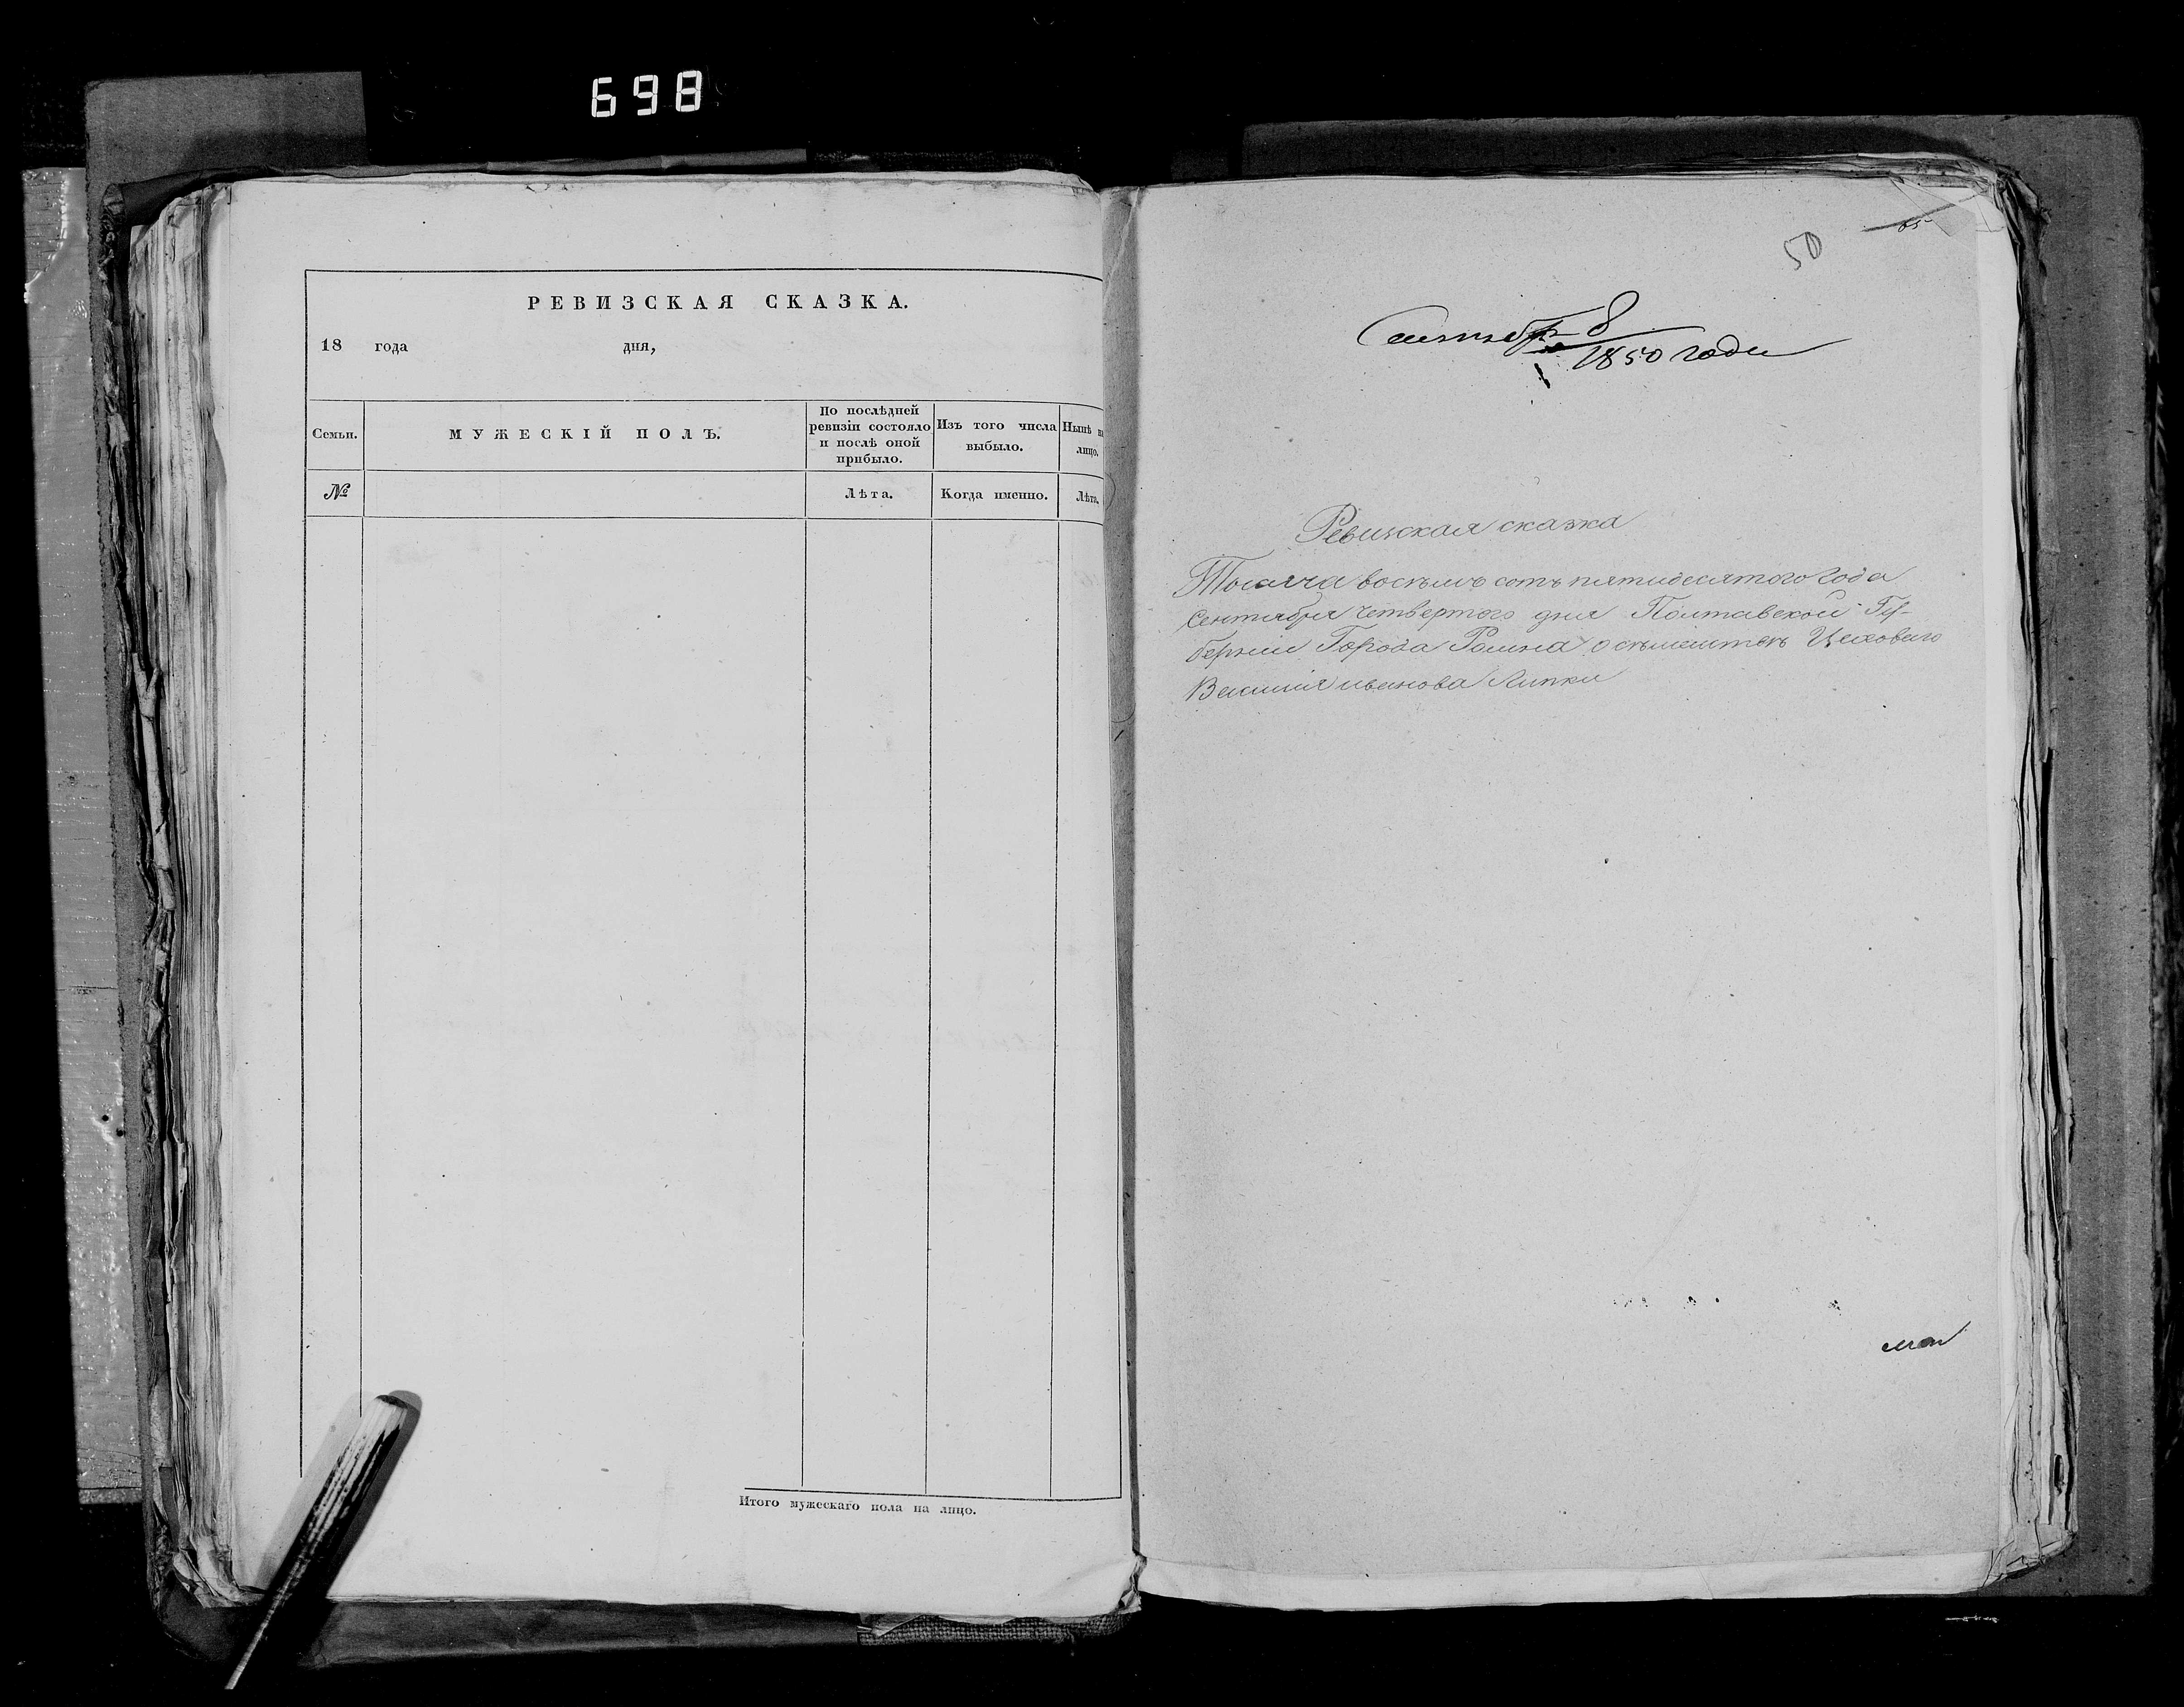 698
РЕВИЗСКАЯ СКАЗКА.
18 года дня,
Семьи.
МУЖЕСКІЙ ПОЛЪ.
По послѣдней ревизіи состояло и послѣ оной прибыло.
Изъ того числа выбыло.
Нынѣ на лицо.
№
Лѣта.
Когда именно.
Лѣта.
Итого мужескаго пола на лицо.
50
Сентябр 8
1850 года
Ревизская сказка
Тысяча восемь сотъ пятидесятого года
Сентября четвертого дня Полтавской Гу-
берніи Города Ромна о семействѣ Цехового
Василия иванова Липки